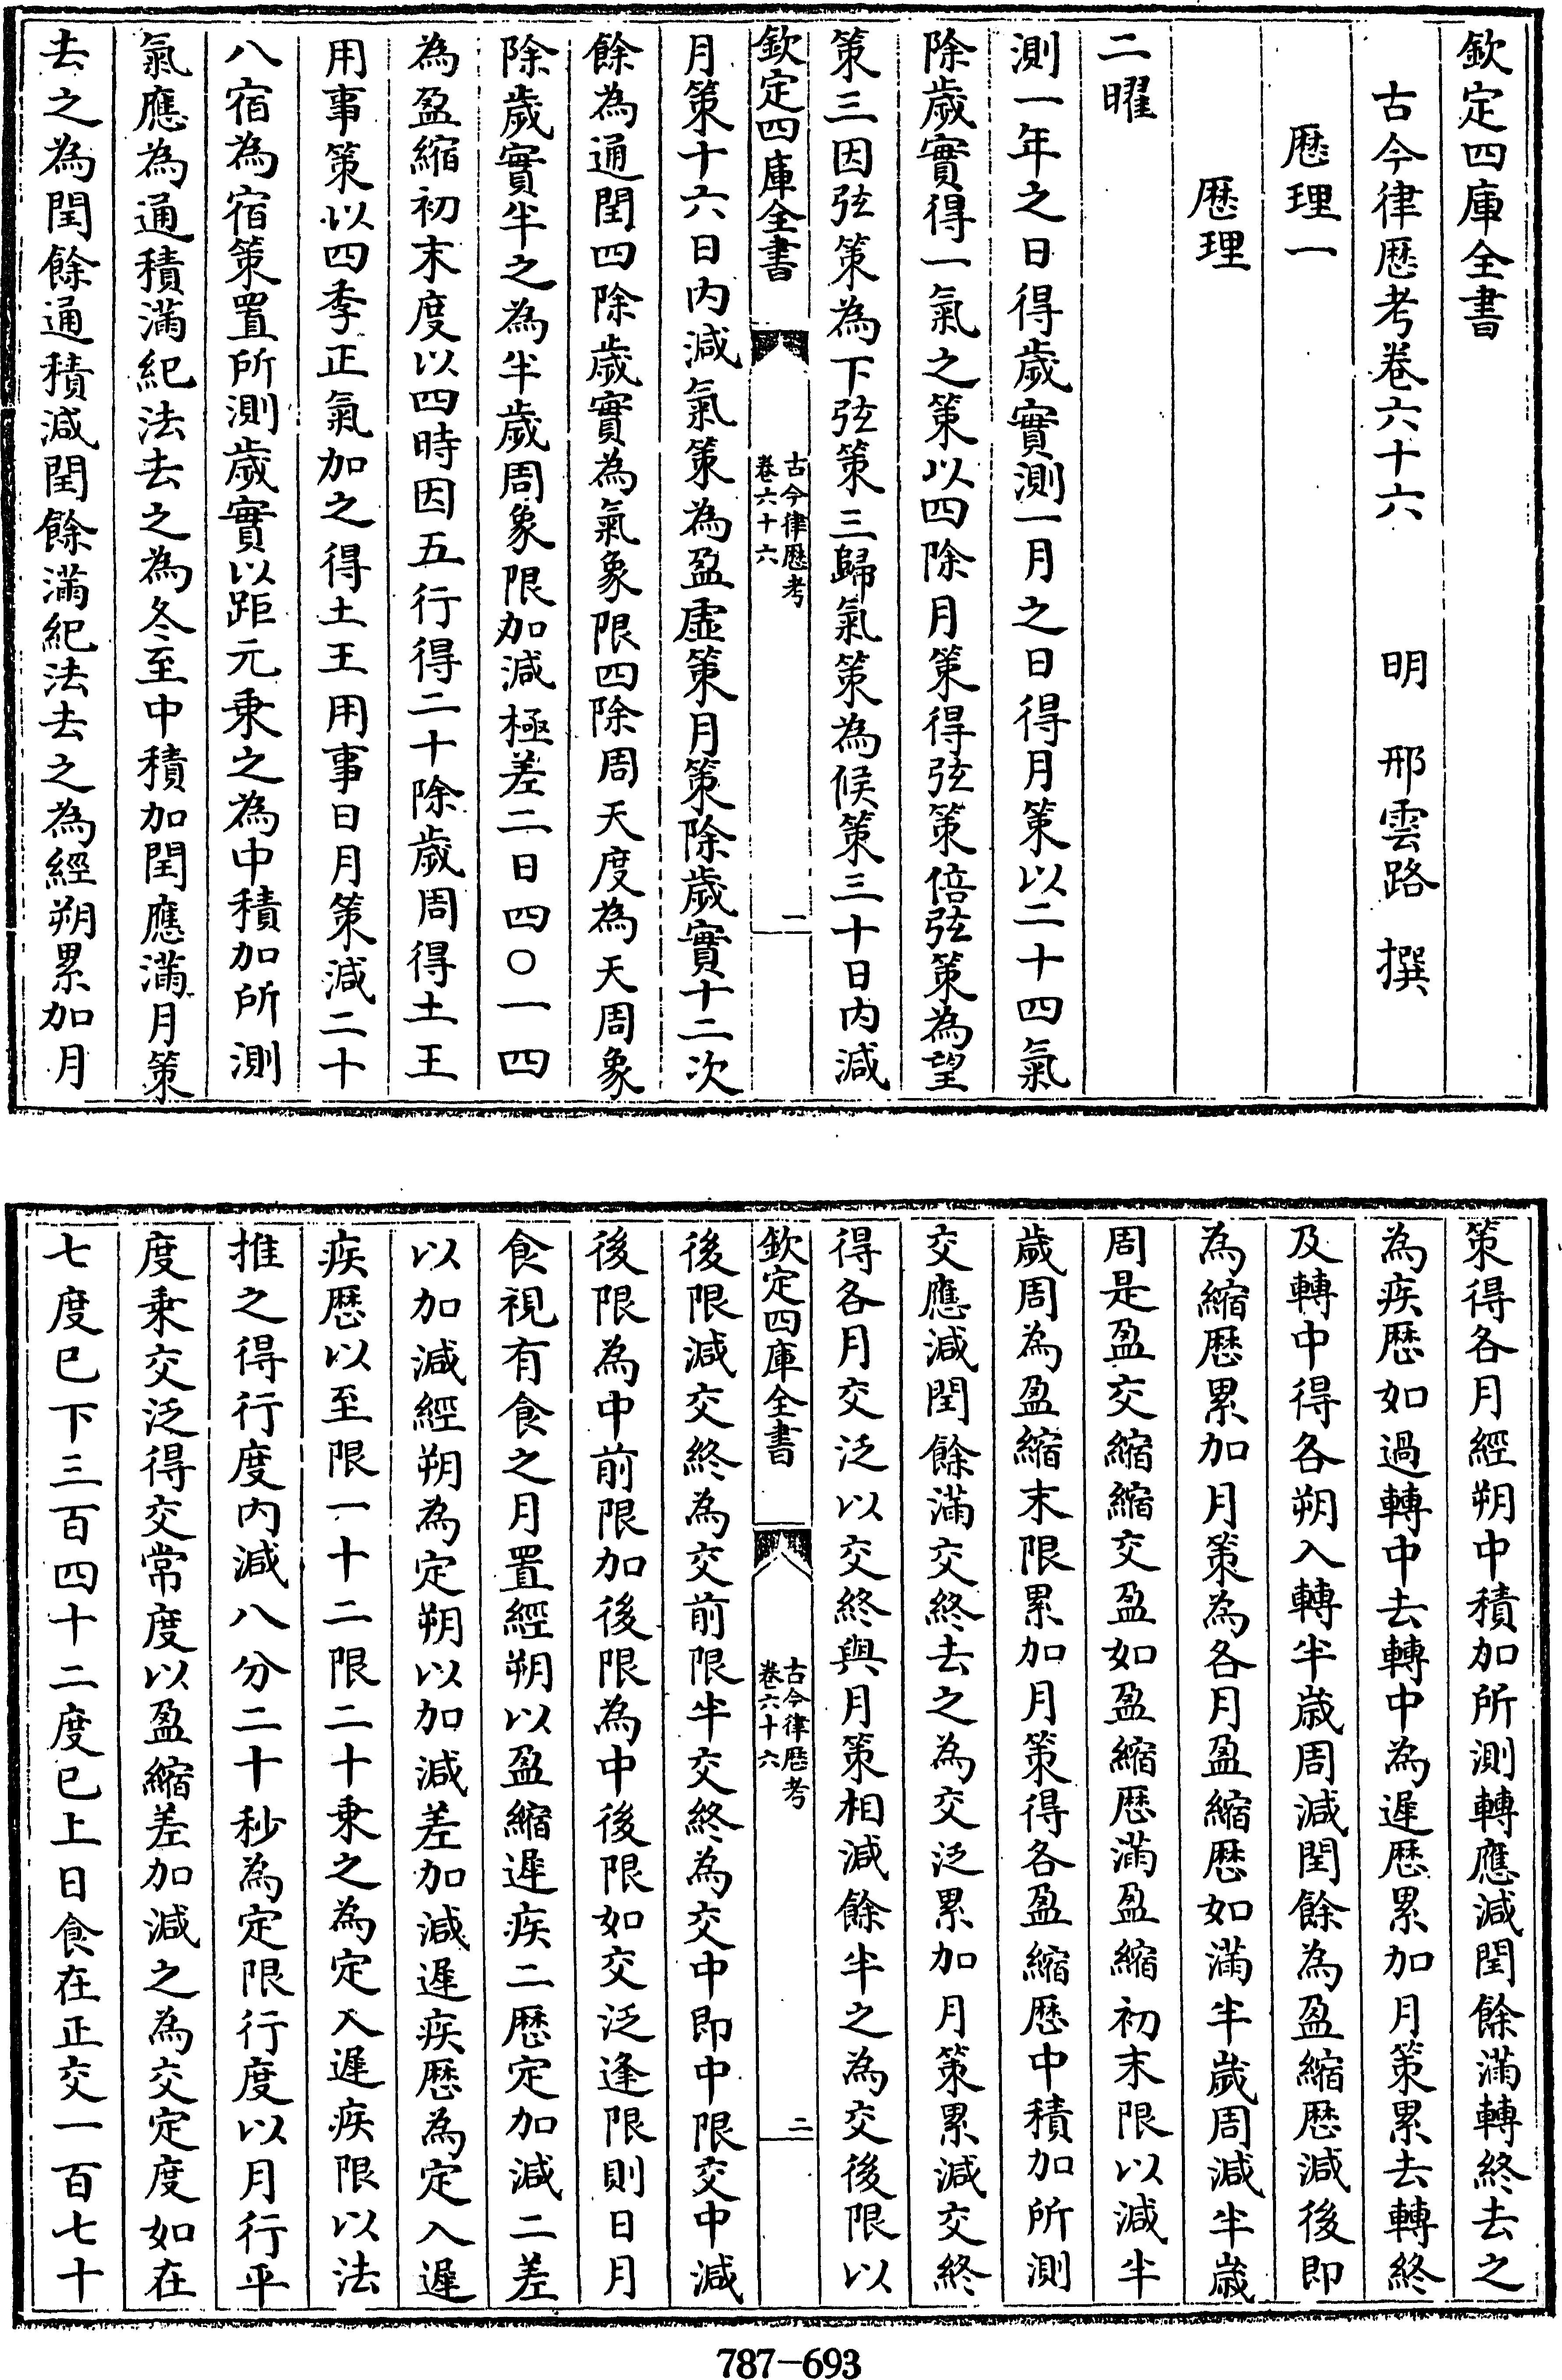 欽定四庫全書
古今律歴考卷六十六 明 邢雲路 撰
歴理一
歴理
二曜
測一年之日得歲實測一月之日得月策以二十四氣
除歲實得一氣之策以四除月策得弦策倍弦策為望
策三因弦策為下弦策三歸氣策為候策三十日內減
欽定四庫全書 古今律歴考 卷六十六 一
月策十六日內減氣策為盈虛策月策除歲實十二次
餘為通閏四除歲實為氣象限四除周天度為天周象
除歲實半之為半歲周象限加減極差二日四〇一四
為盈縮初末度以四時因五行得二十除歲周得土王
用事策以四季正氣加之得土王用事日月策減二十
八宿為宿策置所測歲實以距元乘之為中積加所測
氣應為通積滿紀法去之為冬至中積加閏應滿月策
去之為閏餘通積減閏餘滿紀法去之為經朔累加月
策得各月經朔中積加所測轉應減閏餘滿轉終去之
為疾歴如過轉中去轉中為遲歴累加月策累去轉終
及轉中得各朔入轉半歲周減閏餘為盈縮歴減後即
為縮歴累加月策為各月盈縮歴如滿半歲周減半歲
周是盈交縮縮交盈如盈縮歴滿盈縮初末限以減半
歲周為盈縮末限累加月策得各盈縮歴中積加所測
交應減閏餘滿交終去之為交泛累加月策累減交終
得各月交泛以交終與月策相減餘半之為交後限以
欽定四庫全書 古今律歴考 卷六十六 二
後限減交終為交前限半交終為交中即中限交中減
後限為中前限加後限為中後限如交泛逢限則日月
食視有食之月置經朔以盈縮遲疾二歴定加減二差
以加減經朔為定朔以加減差加減遲疾歴為定入遲
疾歴以至限一十二限二十乘之為定入遲疾限以法
推之得行度內減八分二十秒為定限行度以月行平
度乘交泛得交常度以盈縮差加減之為交定度如在
七度已下三百四十二度已上日食在正交一百七十
787-693